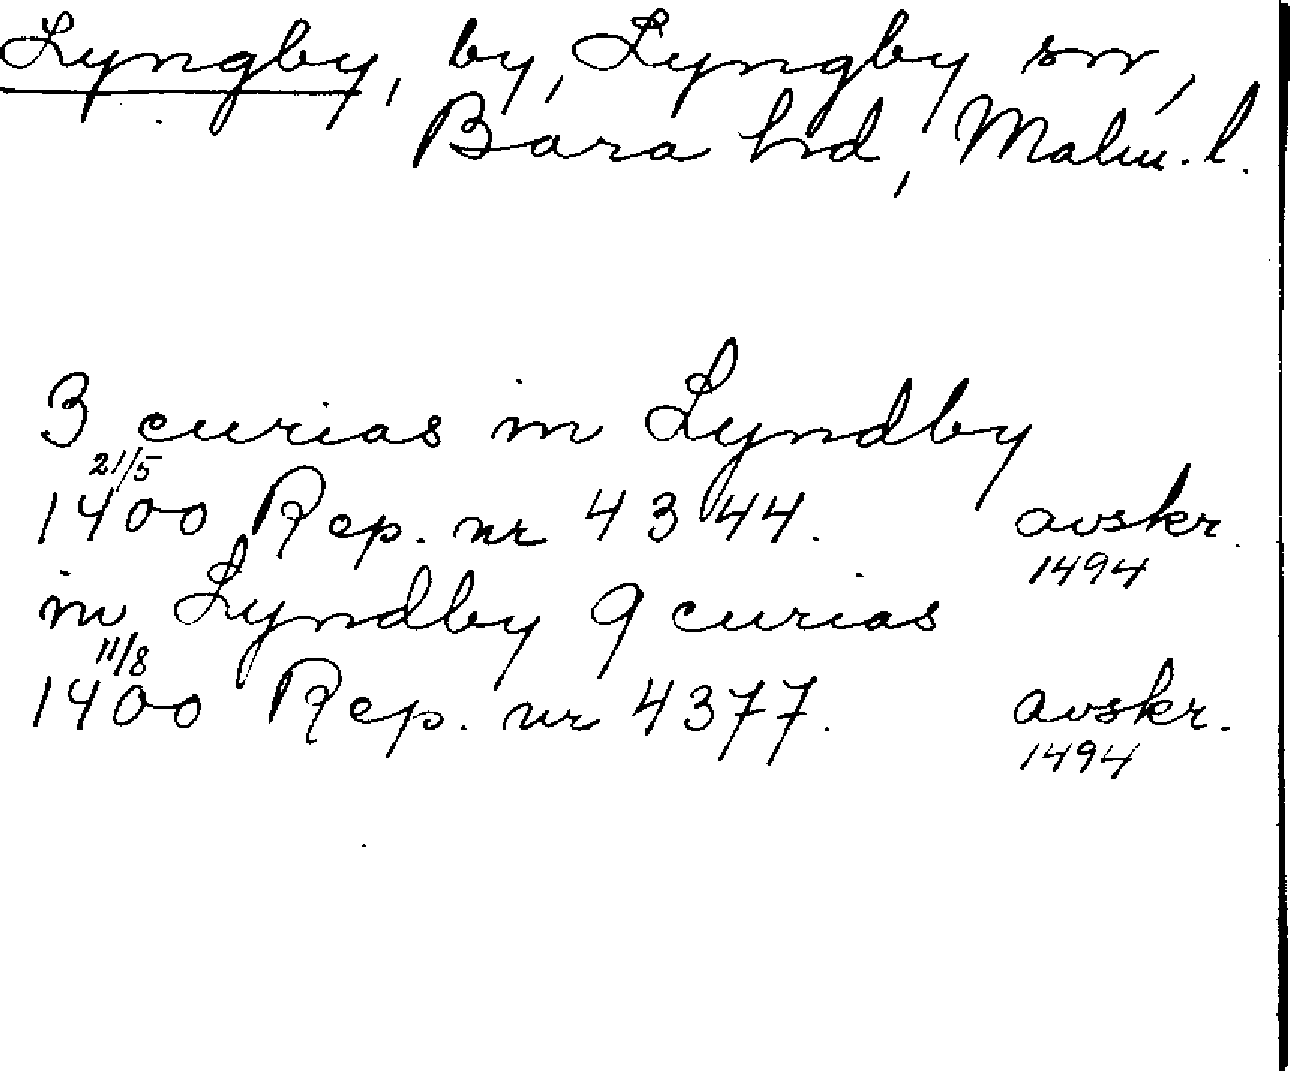 Lyngby, by, Lyngby sn,
Bara hd, Malm. l.
3 curias in Lyndby
21/5
1400 Rep. nr 4344. avskr.
1494
in Lyndby 9 curias
11/8
1400 Rep. nr 4377. avskr.
1494